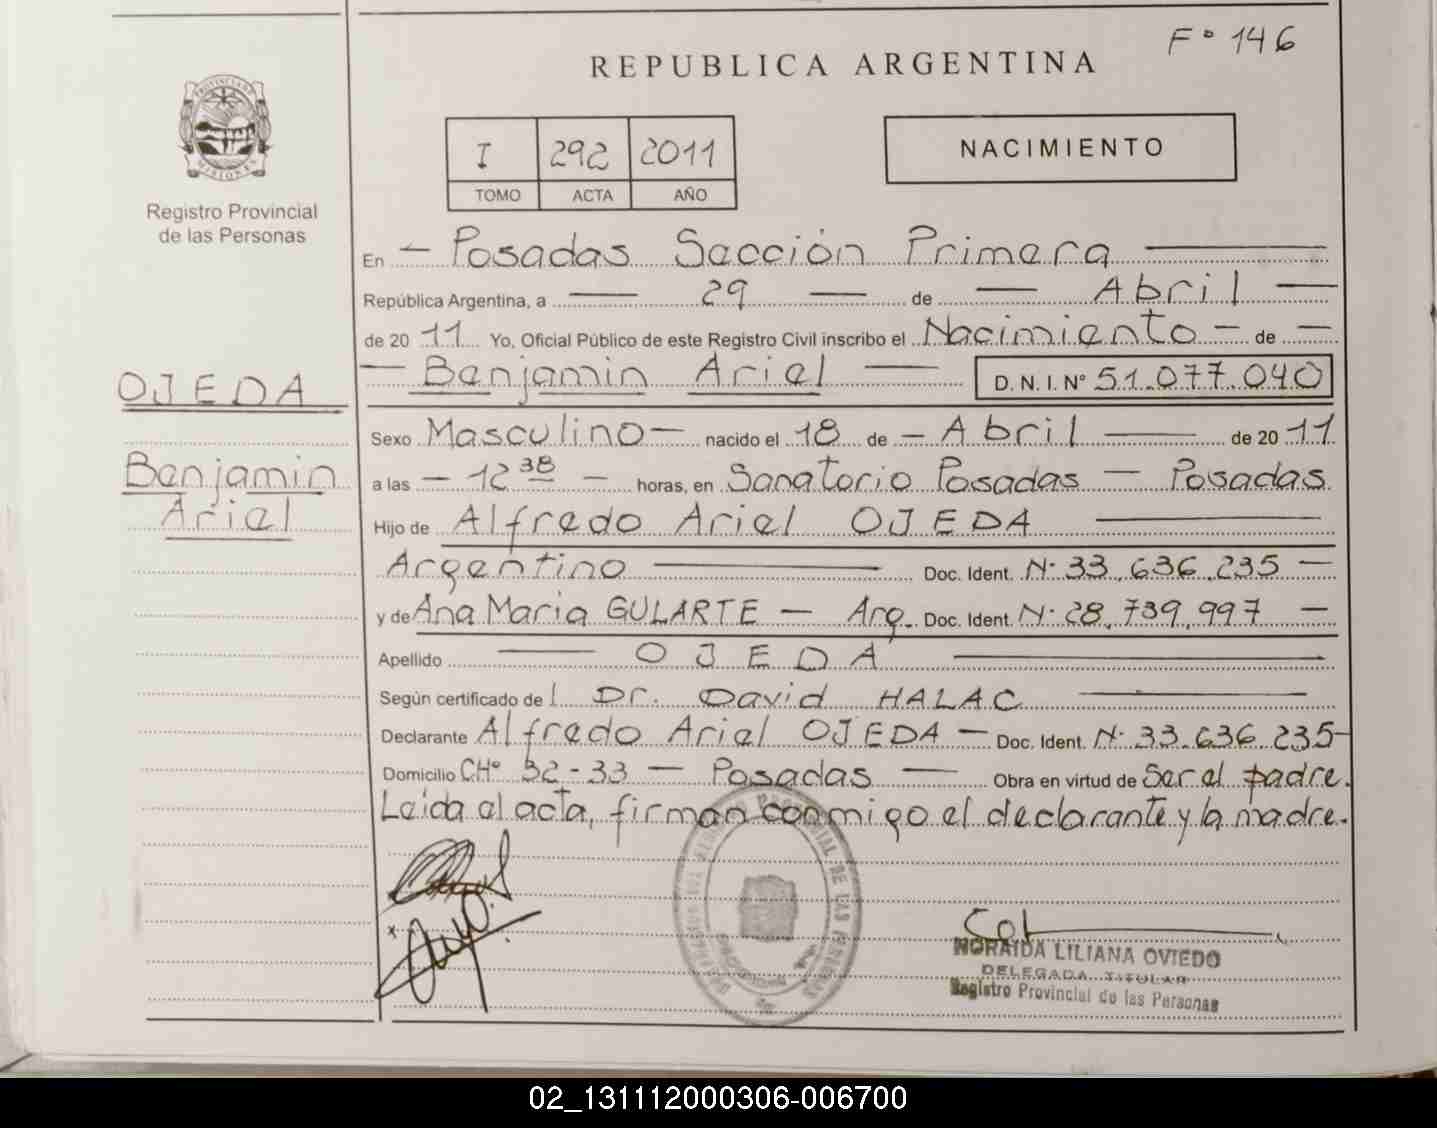 F° 146
REPUBLICA ARGENTINA
PROVINCIA DE MISIONES
Registro Provincial
de las Personas
I 292 2011
TOMO ACTA AÑO
NACIMIENTO
En — Posadas Sección Primera —
República Argentina, a — 29 — de — Abril —
de 2011 Yo, Oficial Público de este Registro Civil inscribo el Nacimiento — de —
— Benjamin Ariel — D. N. I. Nº 51.077.040
OJEDA
Benjamin
Ariel
Sexo Masculino — nacido el 18 de — Abril — de 2011
a las — 12 38 — horas, en Sanatorio Posadas — Posadas
Hijo de Alfredo Ariel OJEDA —
Argentino — Doc. Ident. N· 33.636.235 —
y de Ana Maria GULARTE — Arg. Doc. Ident. N· 28.739.997 —
Apellido — OJEDA —
Según certificado de l Dr. David HALAC —
Declarante Alfredo Ariel OJEDA — Doc. Ident. N· 33.636.235 —
Domicilio CHº 32-33 — Posadas — Obra en virtud de Ser el padre.
Leida el acta, firman conmigo el declarante y la madre.
NORAIDA LILIANA OVIEDO
DELEGADA TITULAR
Registro Provincial de las Personas
02_131112000306-006700